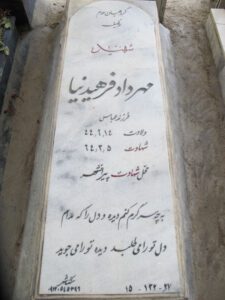 شهید
مهرداد فرهیدنیا
فرزند عباس
ولادت ۴۴,۹,۱۴
شهادت ۶۴,۳,۵
محل شهادت پیرانشهر
به چه سرگرم کنم دیده و دل را که مدام
دل تو را می طلبد دیده تو را می جوید
۱۵ - ۱۳۲ - ۲۷